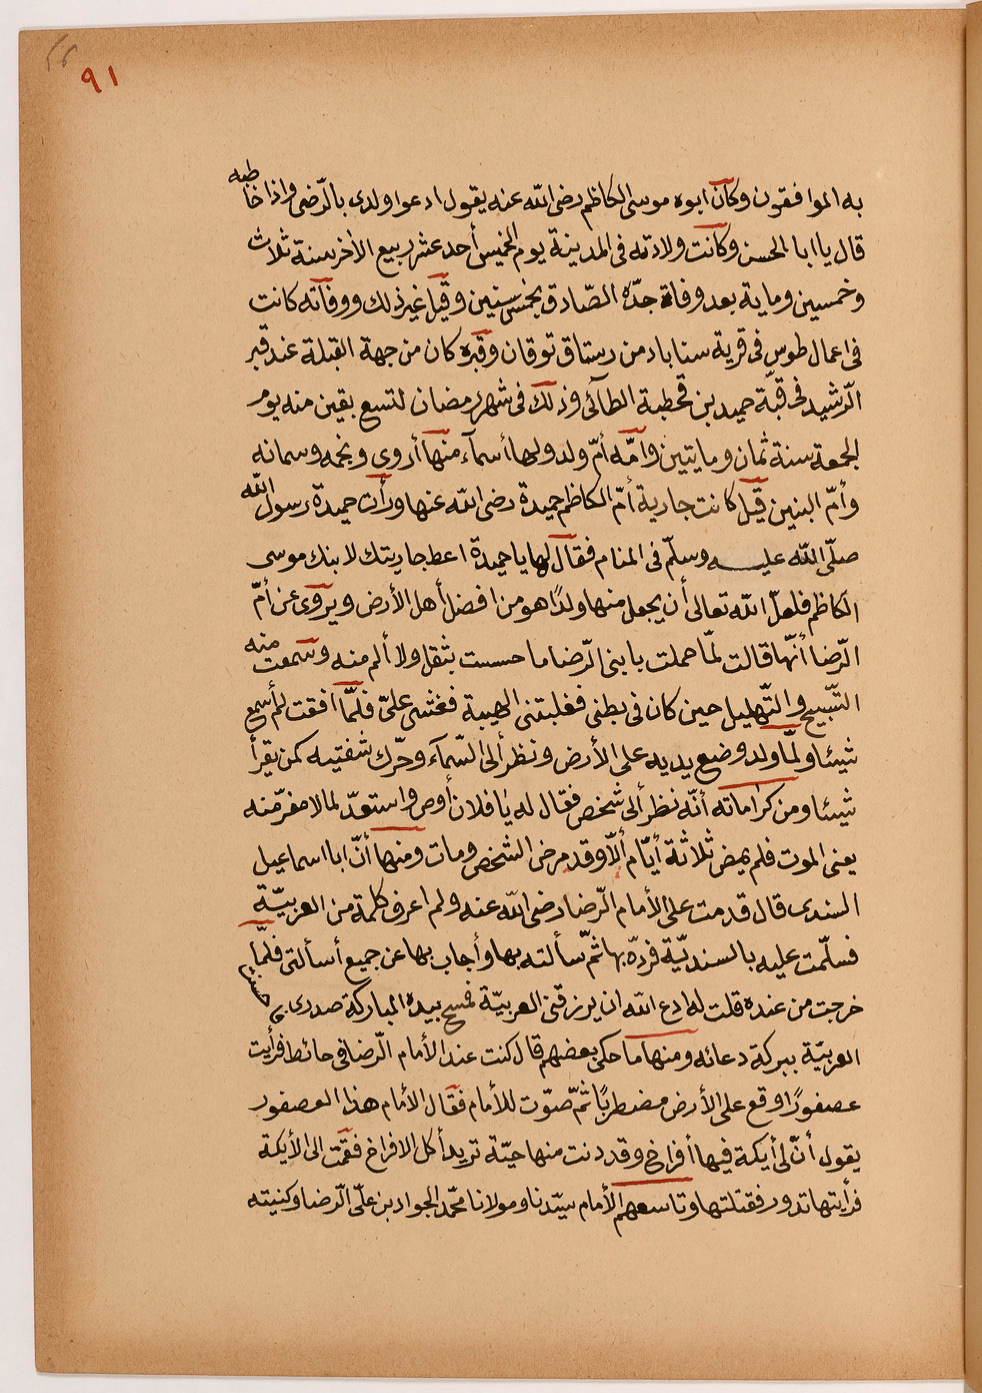 ٩١
به الموافقون وكان ابوه موسى الكاظم رضى الله عنه يقول ادعوا ولدى بالرّضى واذا خاطبه
قال يا ابا الحسن وكانت ولادته فى المدينة يوم الخميس أحد عشر ربيع الاٰخر سنة ثلاث
وخمسين وماية بعد وفاة جدّه الصّادق بخمس سنين وقيل غير ذلك ووفاته كانت
فى اعمال طوس فى قرية سناباد من رستاق توقان وقبره كان من جهة القبلة عند قبر
الرّشيد فى قبّة حميد بن قحطبة الطآئى وذلك فى شهر رمضان لتسع بقين منه يوم
الجمعة سنة ثمان ومايتين وامّه أمّ ولد ولها أسمآء منها أروى ونجمه وسمانه
وأمّ البنين قيل كانت جارية أمّ الكاظم حميدة رضى الله عنها ورأت حميدة رسول الله
صلّى الله عليه وسلّم فى المنام فقال لها يا حميدة اعط جاريتك لابنك موسى
الكاظم فلعلّ الله تعالى أن يجعل منها ولدًا هو من افضل أهل الأرض ويروى عن أمّ
الرّضا أنّها قالت لمّا حملت بابنى الرّضا ما حسست بثقل ولا ألم منه وسمعت منه
التّسبيح والتّهليل حين كان فى بطنى فغلبتنى الهيبة فغشى علىّ فلمّا افقت لم أسمع
شيئا ولمّا ولد وضع يديه على الأرض ونظر ألى السّمآء وحرّك شفتيه كمن يقرأ
شيئا ومن كراماته أنّه نظر ألى شخص فقال له يٰا فلان أوص واستعدّ لما لا مفرّ منه
يعنى الموت فلم يمض ثلاثة أيّام ألّا وقد مرض الشخص ومات ومنها أنّ ابا اسماعيل
السندى قال قدمت على الأمام الرّضا رضى الله عنه ولم اعرف كلمة من العربيّة
فسلّمت عليه بالسنديّة فردّ بها ثمّ سألته بها وأجاب بها عن جميع أسألتى فلمّا
خرجت من عنده قلت له ادع الله ان يرزقنى العربيّة فمسح بيده المباركة صدرى
العربيّة ببركة دعائه ومنها ما حكى بعضهم قال كنت عند الأمام الرّضا فى حائط فرأيت
عصفورًا وقع على الأرض مضطربًا ثمّ صوّت للأمام فقال الأمام هذا العصفور
يقول أنّ لى أيكة فيها أفراخ وقد دنت منها حيّة تريد أكل الافراخ فقمت الى الأيكة
فرأيتها تدور فقتلتها وتاسعهم الأمام سيّدنا ومولانا محمّد الجواد بن علىّ الرّضا وكنيته